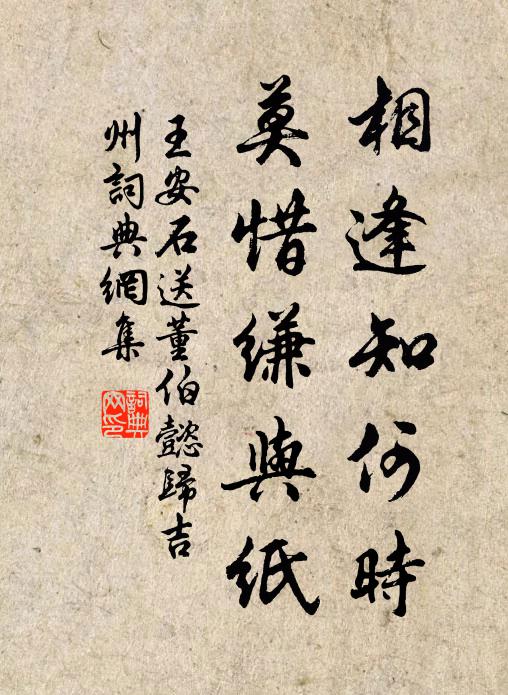 相逢知何時
莫惜縑與紙
王安石送董伯懿歸吉
州詞典網集
詞典
网印